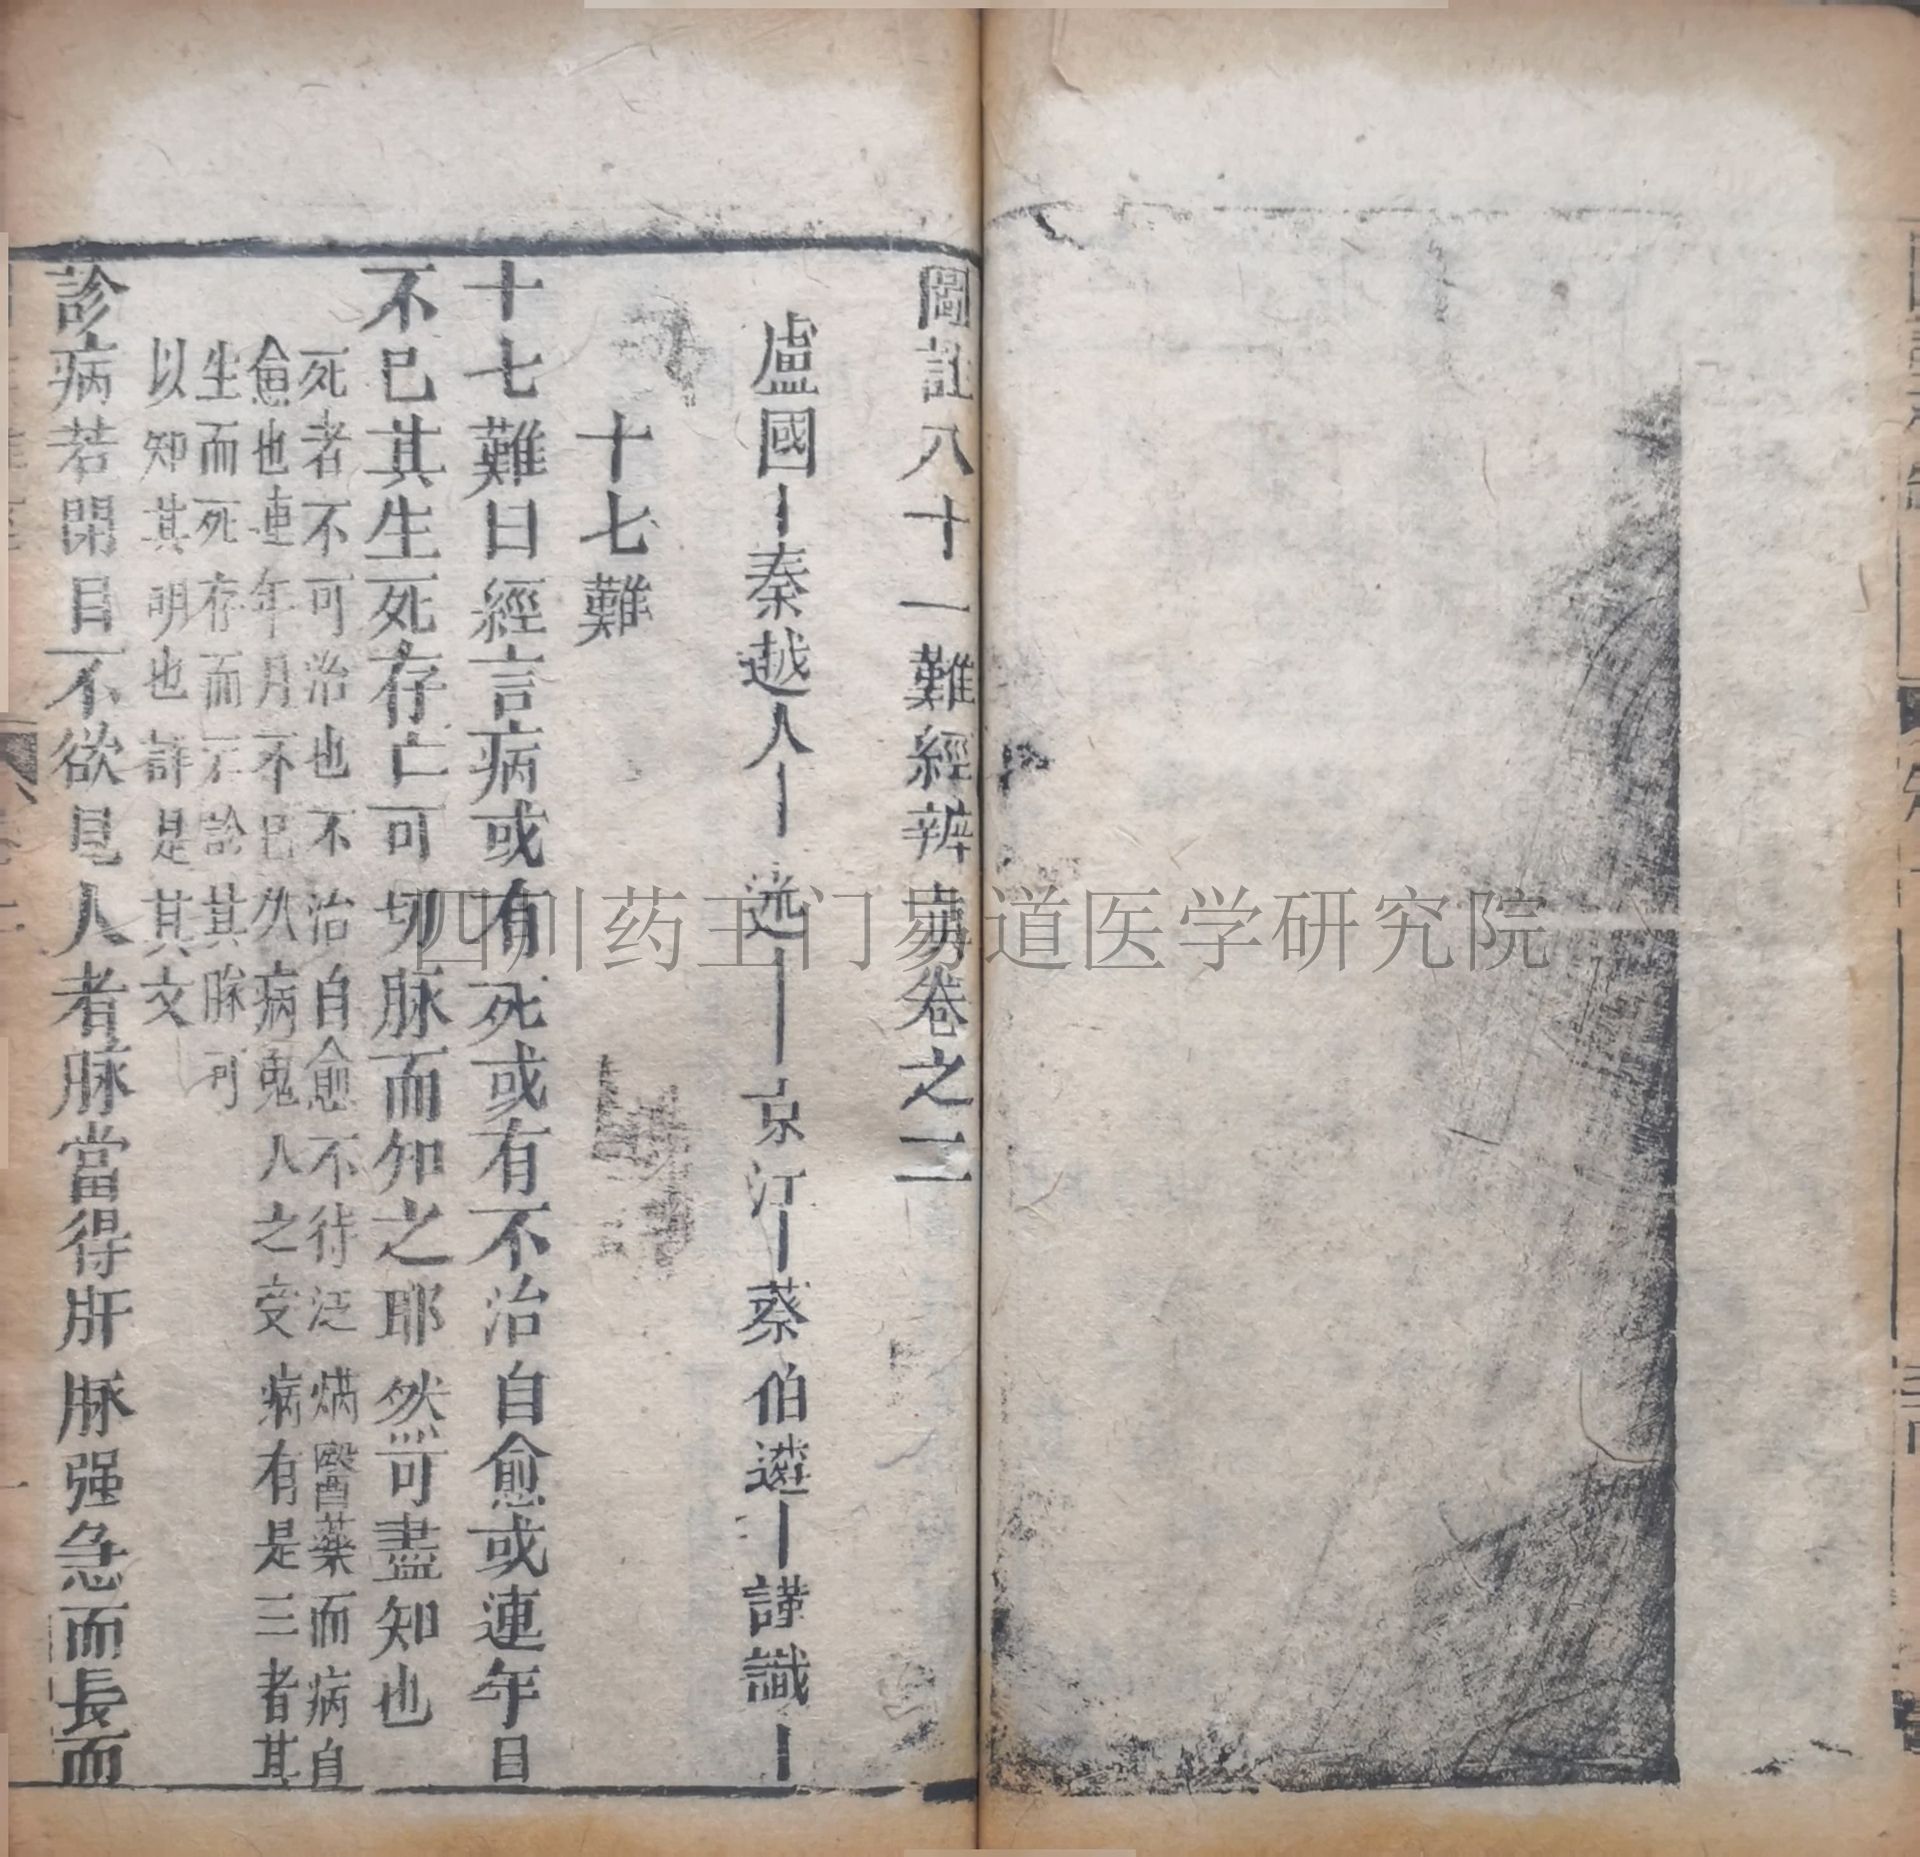 圖註八十一難經辨眞卷之二
盧國｜秦越人｜述｜京江｜蔡伯遴｜謹識｜
十七難
十七難曰經言病或有死或有不治自愈或連年月
不已其生死存亡可切脉而知之耶然可盡知也
死者不可治也不治自愈不待泛煩醫藥而病自
愈也連年月不已久病鬼人之受病有是三者其
生而死存而亡診其脉可
以知其明也詳是其文
診病若閉目不欲見人者脉當得肝脉强急而長而
四川药王门易道医学研究院